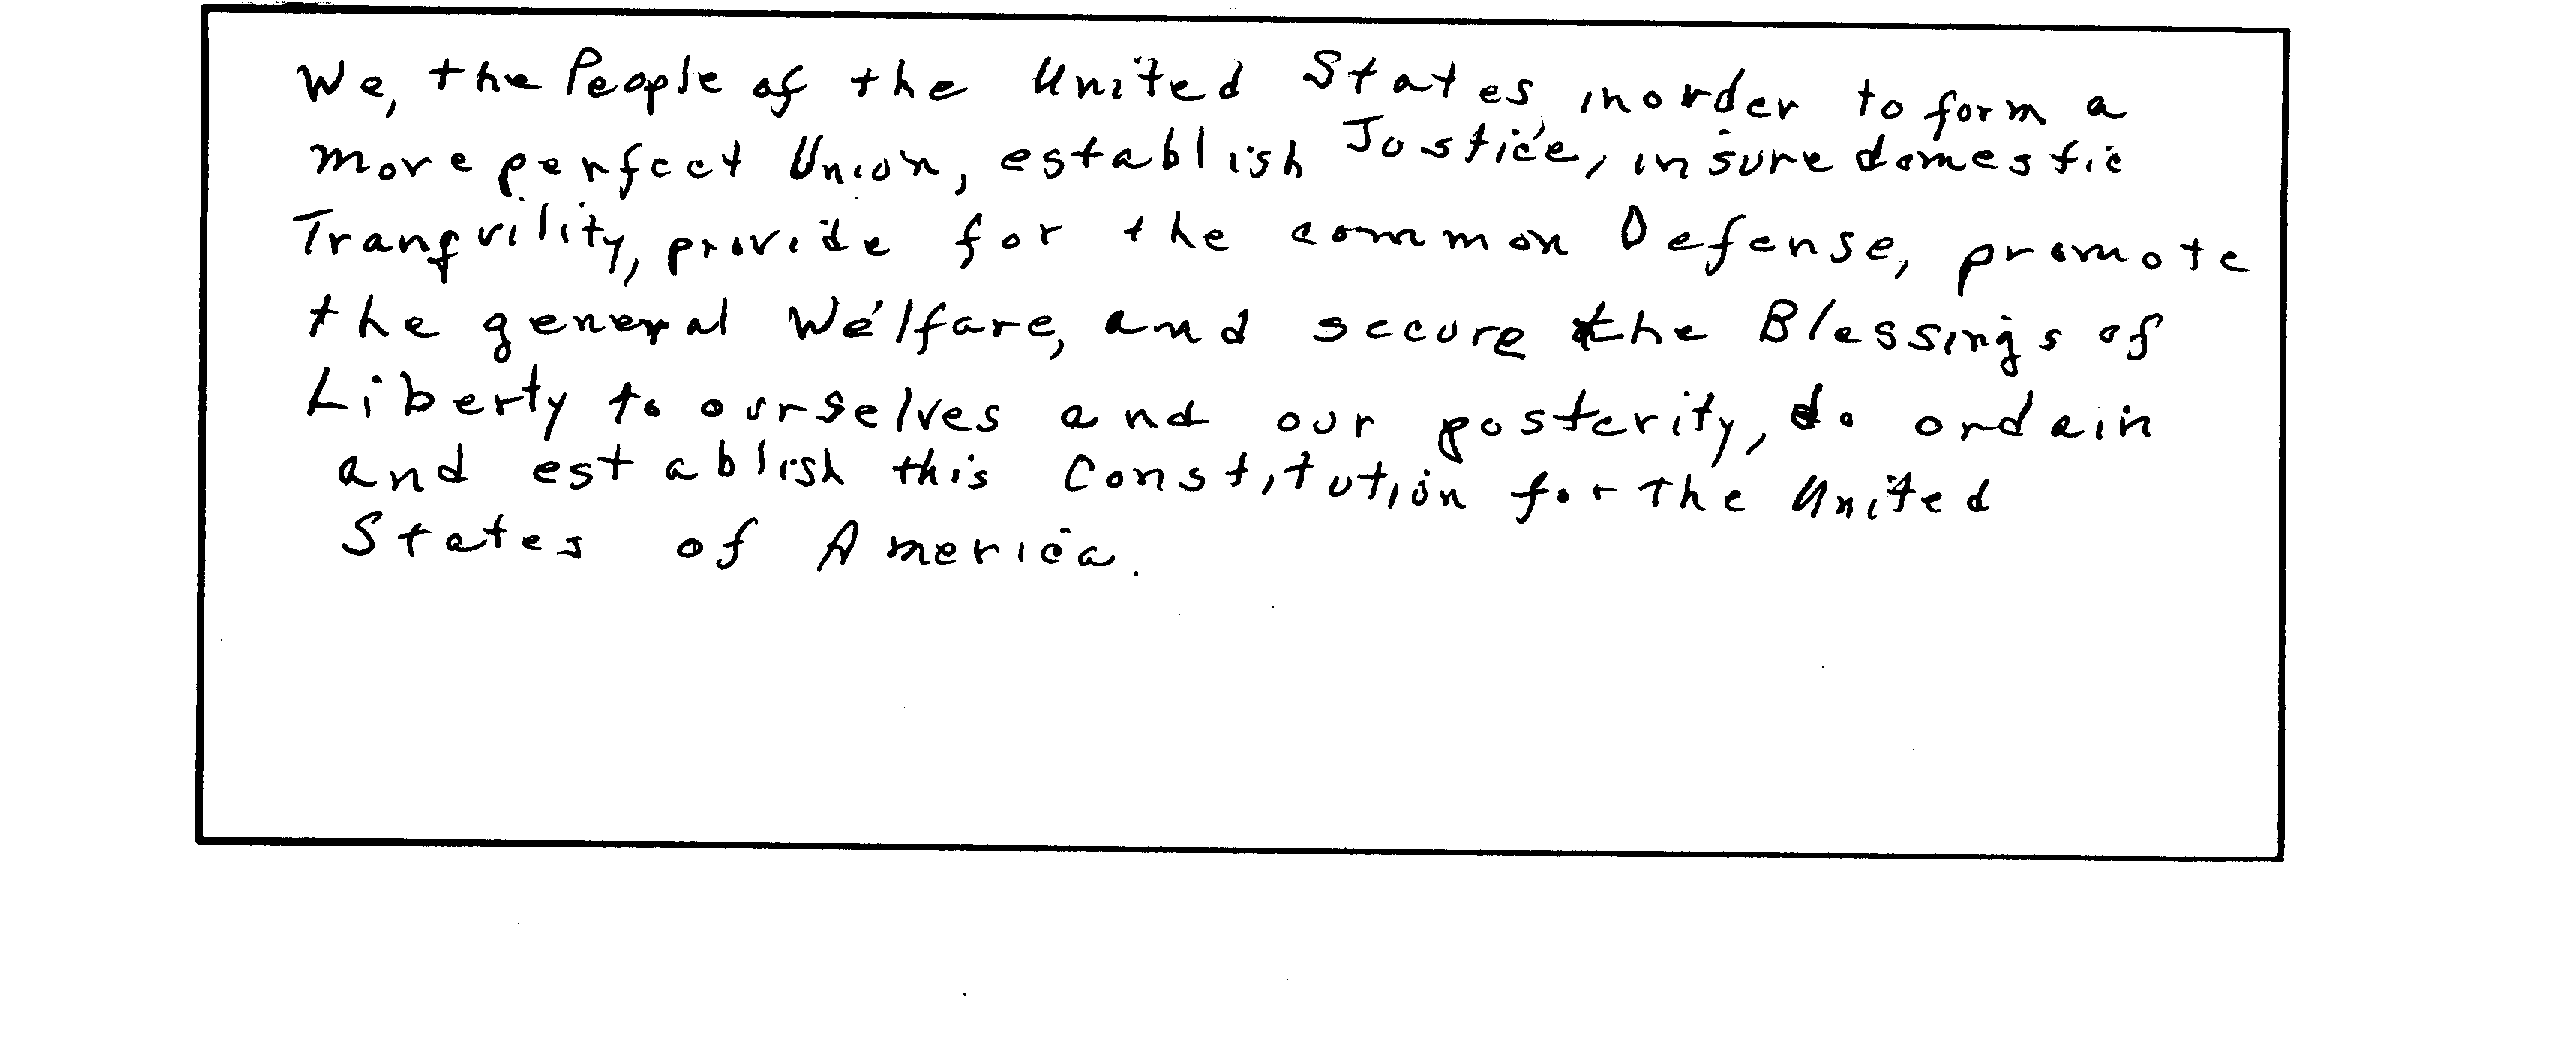 We, the People of the United States, inorder to form a
more perfect Union, establish Justice, insure domestic
Tranquility, provide for the common Defense, promote
the general Welfare, and secure the Blessings of
Liberty to ourselves and our posterity, do ordain
and establish this Constitution for the United
States of America.